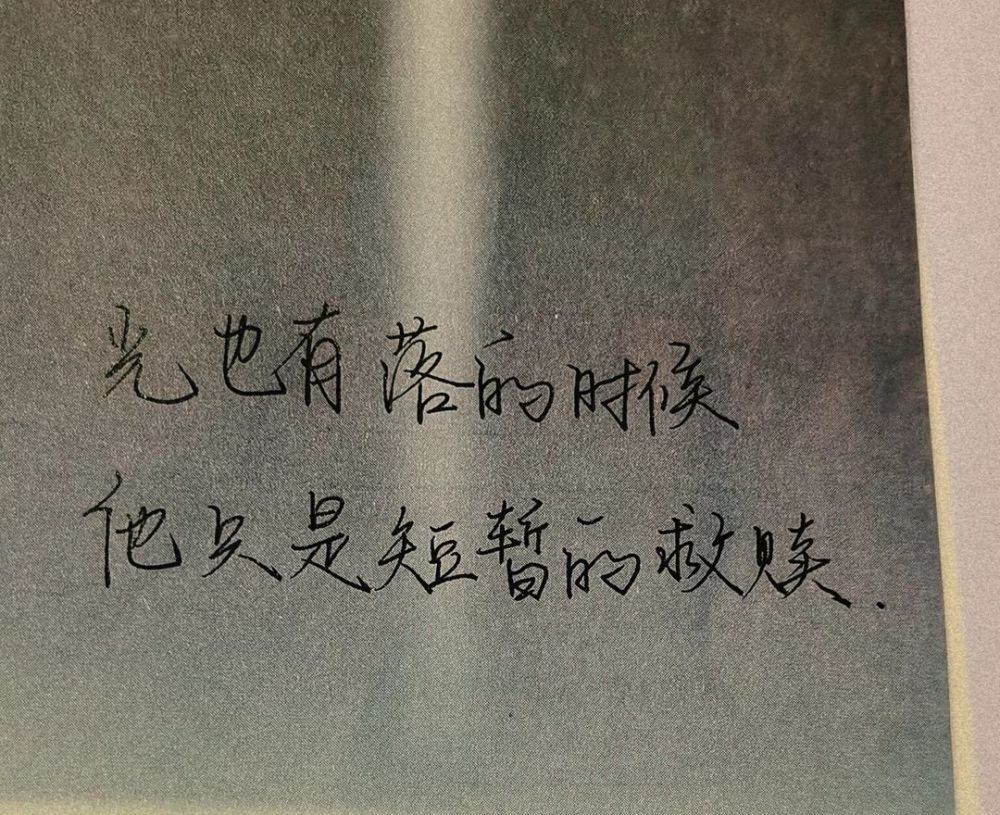 光也有落的时候
他只是短暂的救赎.